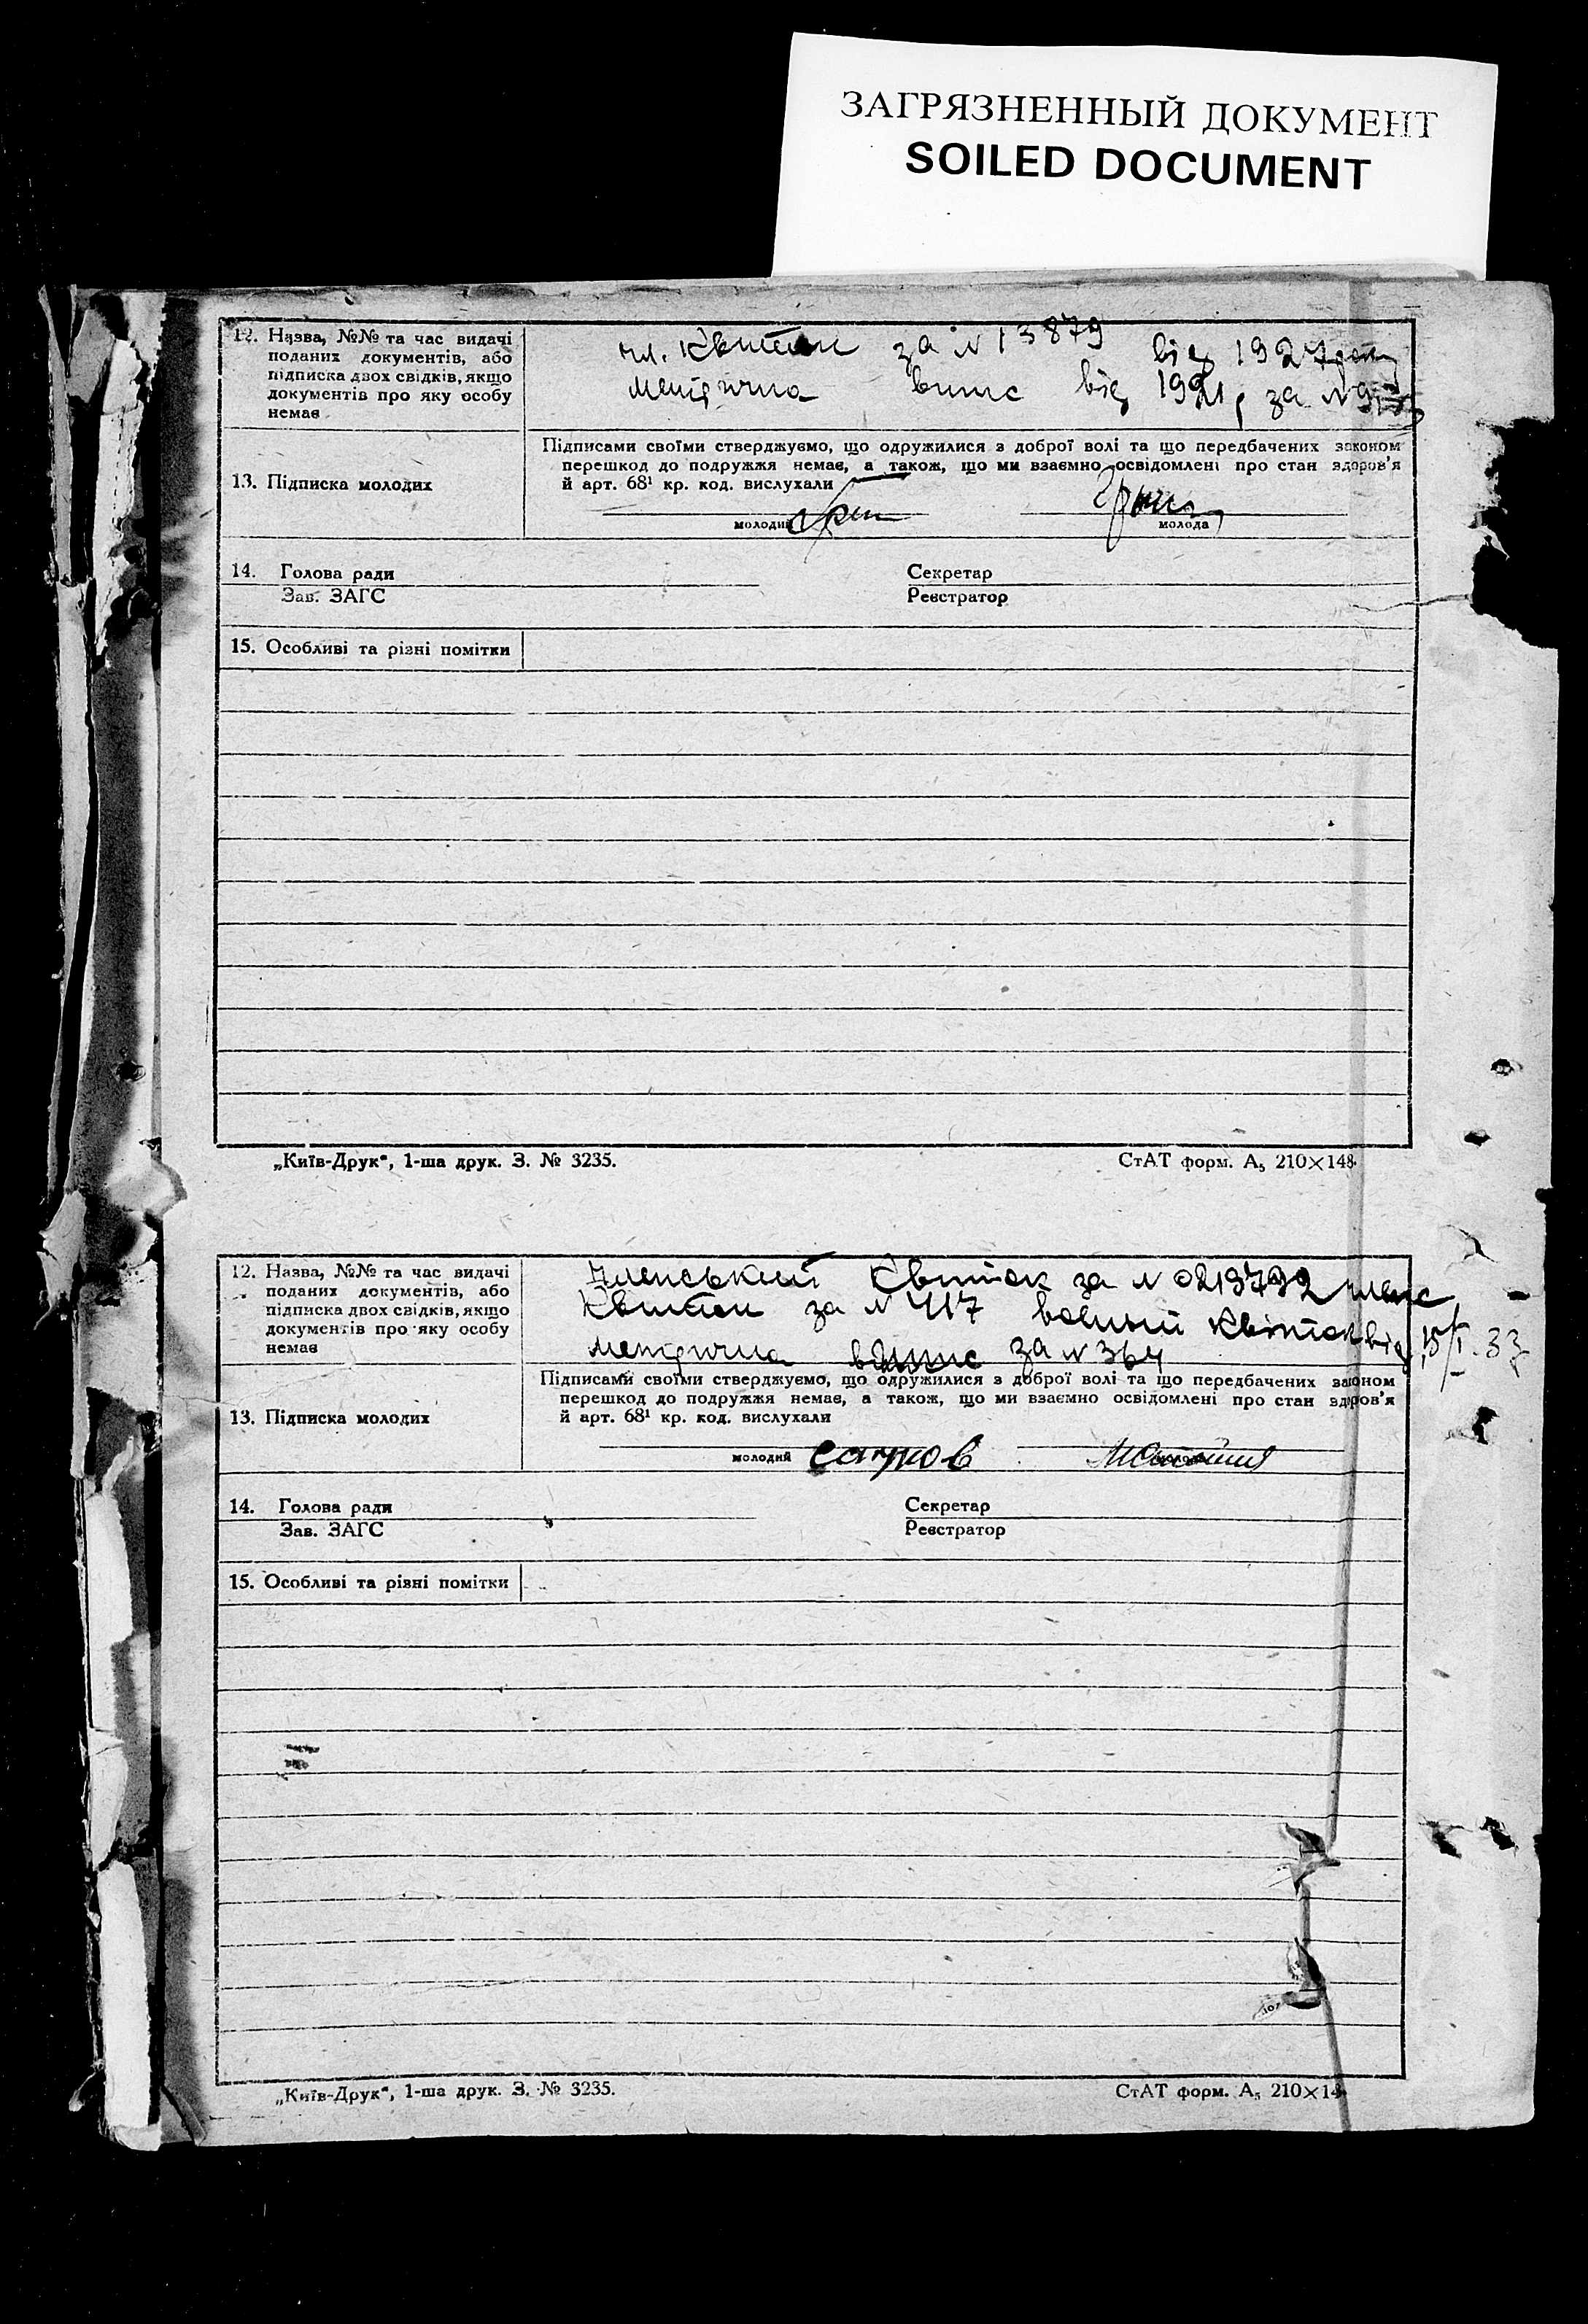 ЗАГРЯЗНЕННЫЙ ДОКУМЕНТ
SOILED DOCUMENT
12. Назва, №№ та час видачі
поданих документів, або
підписка двох свідків, якщо
документів про яку особу
немає
чл. Квиток за № 13879 від 1927 року
метрична випис від за №
13. Підписка молодих
Підписами своїми стверджуємо, що одружилися з доброї волі та що передбачених законом
перешкод до подружжя немає, а також, що ми взаємно освідомлені про стан здоров'я
й арт. 68¹ кр. код. вислухали
молодий
молода
14. Голова ради
Зав. ЗАГС
Секретар
Реєстратор
15. Особливі та різні помітки
„Київ-Друк“, 1-ша друк. З. № 3235.
СтАТ форм. А₅ 210×148
12. Назва, №№ та час видачі
поданих документів, або
підписка двох свідків, якщо
документів про яку особу
немає
Членський Квиток за № 0219792 членс
Квиток за № 417 воєный Квіток від 15/I. 33
метрична випис за № 364
13. Підписка молодих
Підписами своїми стверджуємо, що одружилися з доброї волі та що передбачених законом
перешкод до подружжя немає, а також, що ми взаємно освідомлені про стан здоров'я
й арт. 68¹ кр. код. вислухали
молодий
14. Голова ради
Зав. ЗАГС
Секретар
Реєстратор
15. Особливі та різні помітки
„Київ-Друк“, 1-ша друк. З. № 3235.
СтАТ форм. А₅ 210×14